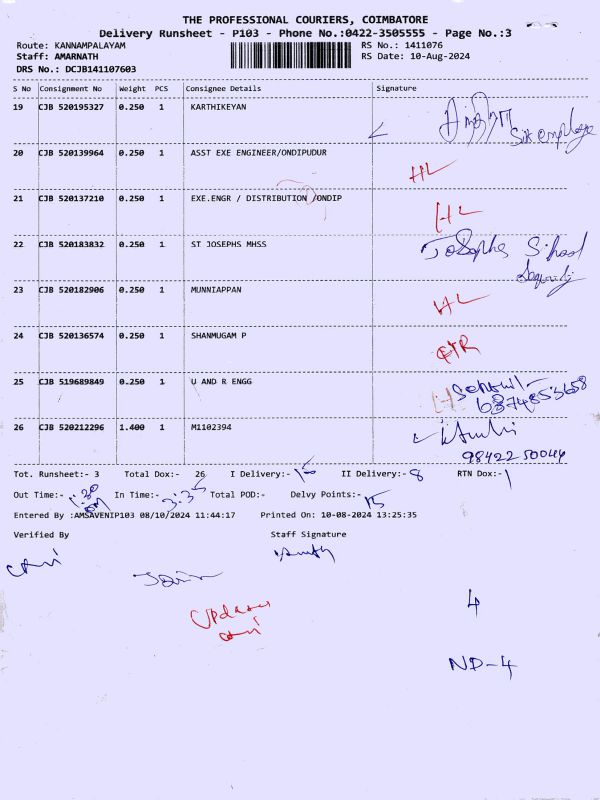 THE PROFESSIONAL COURIERS, COIMBATORE
Delivery Runsheet - P103 - Phone No.:0422-3505555 - Page No.:3
Route: KANNAMPALAYAM RS No.: 1411076
Staff: AMARNATH RS Date: 10-Aug-2024
DRS No.: DCJB141107603
S No Consignment No Weight PCS Consignee Details Signature
19 CJB 520195327 0.250 1 KARTHIKEYAN
20 CJB 520139964 0.250 1 ASST EXE ENGINEER/ONDIPUDUR HL
21 CJB 520137210 0.250 1 EXE.ENGR / DISTRIBUTION /ONDIP HL
22 CJB 520183832 0.250 1 ST JOSEPHS MHSS
23 CJB 520182906 0.250 1 MUNNIAPPAN HL
24 CJB 520136574 0.250 1 SHANMUGAM P
25 CJB 519689849 0.250 1 U AND R ENGG
6374853658
26 CJB 520212296 1.400 1 M1102394
98422 50046
Tot. Runsheet:- 3 Total Dox:- 26 I Delivery:- 15 II Delivery:- 8 RTN Dox:- 1
Out Time:- 1:30 In Time:- 3:35 Total POD:- Delvy Points:- 15
Entered By :AMSAVENIP103 08/10/2024 11:44:17 Printed On: 10-08-2024 13:25:35
Verified By Staff Signature
4
ND-4